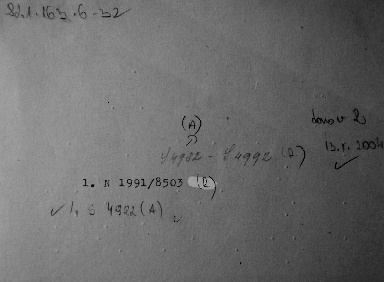 82.1.163.6-32
(A)
4982 - 4992 (2)
13.V.2004
1. N 1991/8503 (2)
1, S 4982 (A)